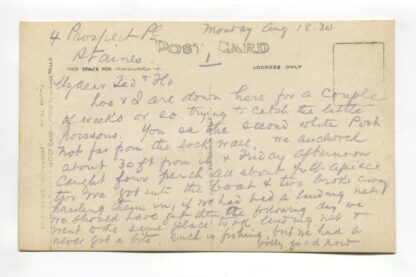 4 Prospect Pl
Monday Aug 18.30
Staines.
POST CARD
THIS SPACE FOR
ADDRESS ONLY
My dear Ted & Flo.
Loo & I are down here for a couple
of weeks or so trying to catch the little
poissons. You see the second white Post
not far from the wall, we anchored
about 30 ft from it & Friday afternoon
caught four perch all about ½lb apiece
two we got into the boat & two broke away
hauling them in, if we had had a landing net
we should have got them, the following day we
went to the same place with landing net &
never got a bite. Such is fishing, but we had a
very good